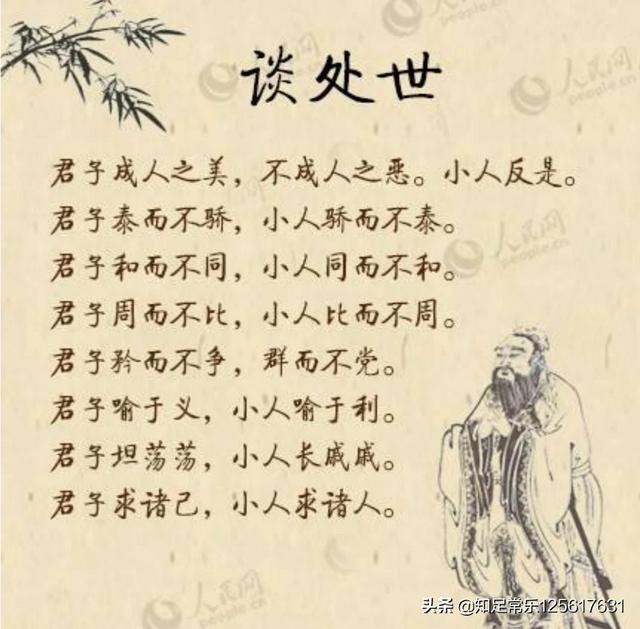 谈处世
君子成人之美，不成人之恶。小人反是。
君子泰而不骄，小人骄而不泰。
君子和而不同，小人同而不和。
君子周而不比，小人比而不周。
君子矜而不争，群而不党。
君子喻于义，小人喻于利。
君子坦荡荡，小人长戚戚。
君子求诸己，小人求诸人。
人民网
people.cn
人民网
people.cn
人民网
people.cn
头条 @知足常乐125617631